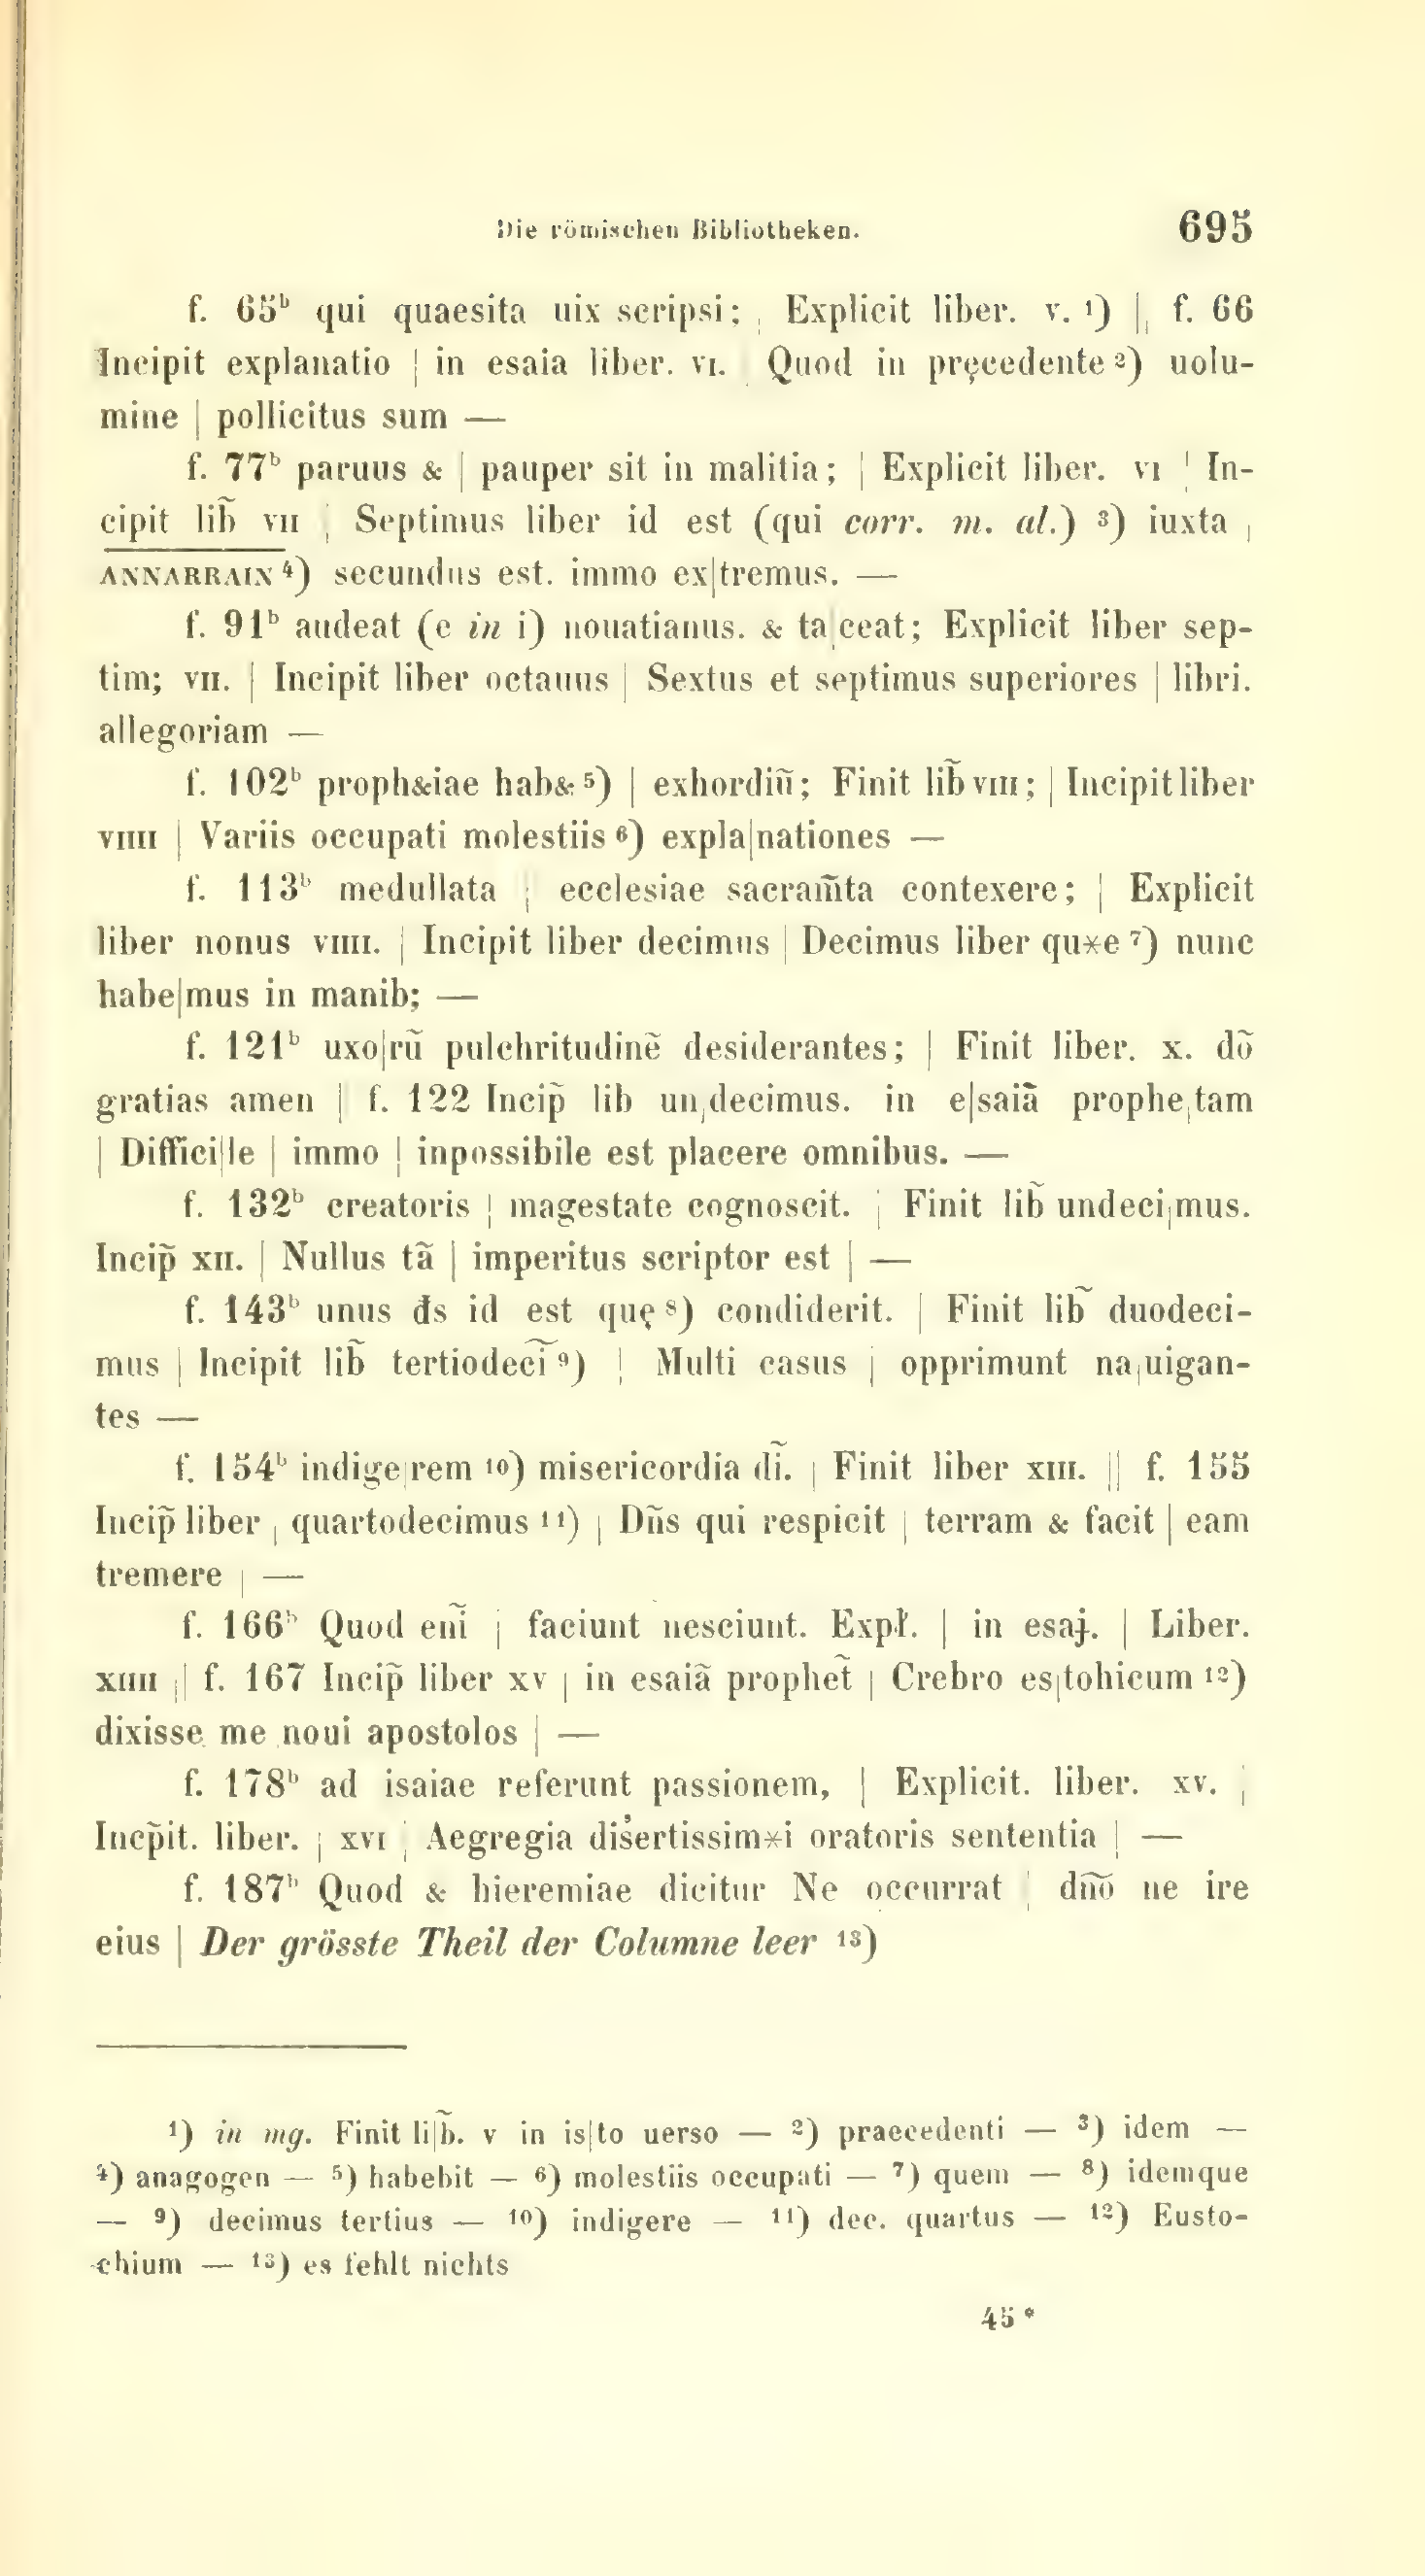 Die römischen Bibliotheken. 695
f. 65ᵇ qui quaesita uix scripsi; | Explicit liber. v. ¹) || f. 66
Incipit explanatio | in esaia liber. vi. | Quod in pręcedente ²) uolu-
mine | pollicitus sum —
f. 77ᵇ paruus & | pauper sit in malitia; | Explicit liber. vi | In-
cipit lib̃ vii | Septimus liber id est (qui corr. m. al.) ³) iuxta |
ANNARRAIN ⁴) secundus est. immo ex|tremus. —
f. 91ᵇ audeat (e in i) nouatianus. & ta|ceat; Explicit liber sep-
tim; vii. | Incipit liber octauus | Sextus et septimus superiores | libri.
allegoriam —
f. 102ᵇ proph&iae hab& ⁵) | exhordiũ; Finit lib̃ viii; | Incipit liber
viiii | Variis occupati molestiis ⁶) expla|nationes —
f. 113ᵇ medullata | ecclesiae sacram̃ta contexere; | Explicit
liber nonus viiii. | Incipit liber decimus | Decimus liber qu*e ⁷) nunc
habe|mus in manib; —
f. 121ᵇ uxo|rũ pulchritudinẽ desiderantes; | Finit liber. x. dõ
gratias amen || f. 122 Incip̃ lib un|decimus. in e|saiã prophe|tam
| Diffici|le | immo | inpossibile est placere omnibus. —
f. 132ᵇ creatoris | magestate cognoscit. | Finit lib̃ undeci|mus.
Incip̃ xii. | Nullus tã | imperitus scriptor est | —
f. 143ᵇ unus đs id est quę ⁸) condiderit. | Finit lib̃ duodeci-
mus | Incipit lib̃ tertiodecĩ ⁹) | Multi casus | opprimunt na|uigan-
tes —
f. 154ᵇ indige|rem ¹⁰) misericordia dĩ. | Finit liber xiii. || f. 155
Incip̃ liber | quartodecimus ¹¹) | Dñs qui respicit | terram & facit | eam
tremere | —
f. 166ᵇ Quod enĩ | faciunt nesciunt. Expł. | in esaɉ. | Liber.
xiiii || f. 167 Incip̃ liber xv | in esaiã prophet̃ | Crebro es|tohicum ¹²)
dixisse me noui apostolos | —
f. 178ᵇ ad isaiae referunt passionem, | Explicit. liber. xv. |
Incp̃it. liber. | xvi | Aegregia disertissim*i oratoris sententia | —
f. 187ᵇ Quod & hieremiae dicitur Ne occurrat | dño ne ire
eius | Der grösste Theil der Columne leer ¹³)
¹) in mg. Finit li|b̃. v in is|to uerso — ²) praecedenti — ³) idem —
⁴) anagogen — ⁵) habebit — ⁶) molestiis occupati — ⁷) quem — ⁸) idemque
— ⁹) decimus tertius — ¹⁰) indigere — ¹¹) dec. quartus — ¹²) Eusto-
chium — ¹³) es fehlt nichts
45 *